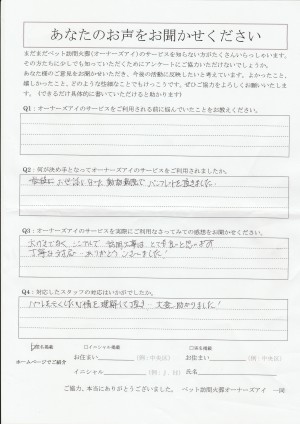 あなたのお声をお聞かせください
まだまだペット訪問火葬(オーナーズアイ)のサービスを知らない方がたくさんいらっしゃいます。
その方たちに少しでも知っていただくためにアンケートにご協力いただけないでしょうか。
あなた様のご意見をお聞かせいただき、今後の活動に反映したいと考えています。よかったこと、
嬉しかったこと、どのような些細なことでもけっこうです。ぜひご協力をよろしくお願いいたしま
す。（できるだけ具体的に書いていただけると助かります）
Q1：オーナーズアイのサービスをご利用される前に悩んでいたことをお教えください。
Q2：何が決め手となってオーナーズアイのサービスをご利用されましたか。
お世話になった動物病院でパンフレットを頂きました。
Q3：オーナーズアイのサービスを実際にご利用なさってみての感想をお聞かせください。
シンプルで とても良いと思います
丁寧な対応 ありがとうございました！
Q4：対応したスタッフの対応はいかがでしたか。
理解して頂き 大変助かりました！
□匿名掲載 □イニシャル掲載 □実名掲載
ホームページでご紹介
お住まい （例：中央区） お住まい （例：中央区）
イニシャル （例：J．H） 氏名
ご協力、本当にありがとうございました。 ペット訪問火葬オーナーズアイ 一同